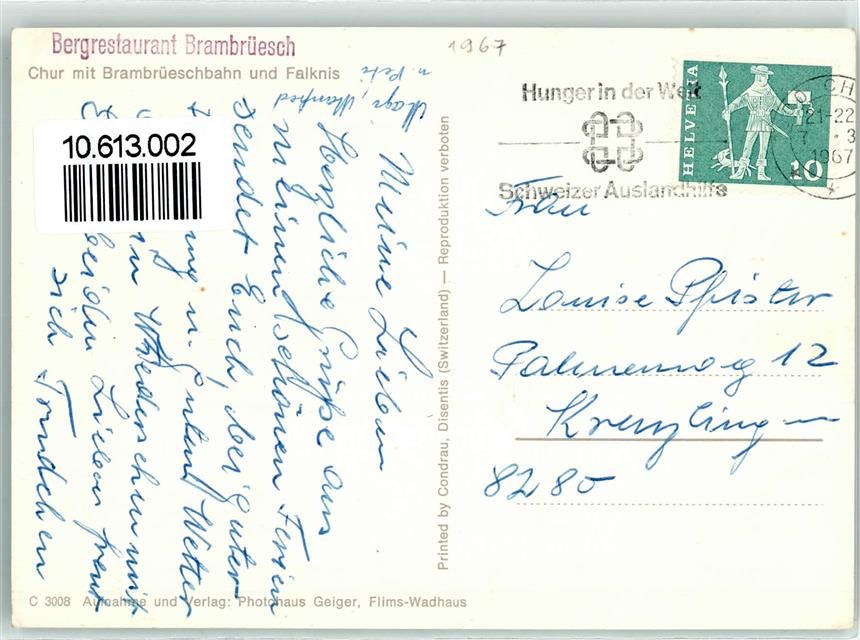 Bergrestaurant Brambrüesch
Chur mit Brambrüeschbahn und Falknis
1967
10.613.002
Meine Lieben
Herzliche Grüße aus
meinen schönen Ferien
sendet Euch bei guter
u. guten Wetter
Wiedersehen mit
beiden Lieben freut
sich Trudchen
Magi, Manfred
u. Peti
Printed by Condrau, Disentis (Switzerland) — Reproduktion verboten
Hunger in der Welt
Schweizer Auslandhilfe
HELVETIA
10
CH
21-22
7 3
1967
Frau
Louise Pfister
Palmenweg 12
Kreuzlingen
8280
C 3008 Aufnahme und Verlag: Photohaus Geiger, Flims-Wadhaus